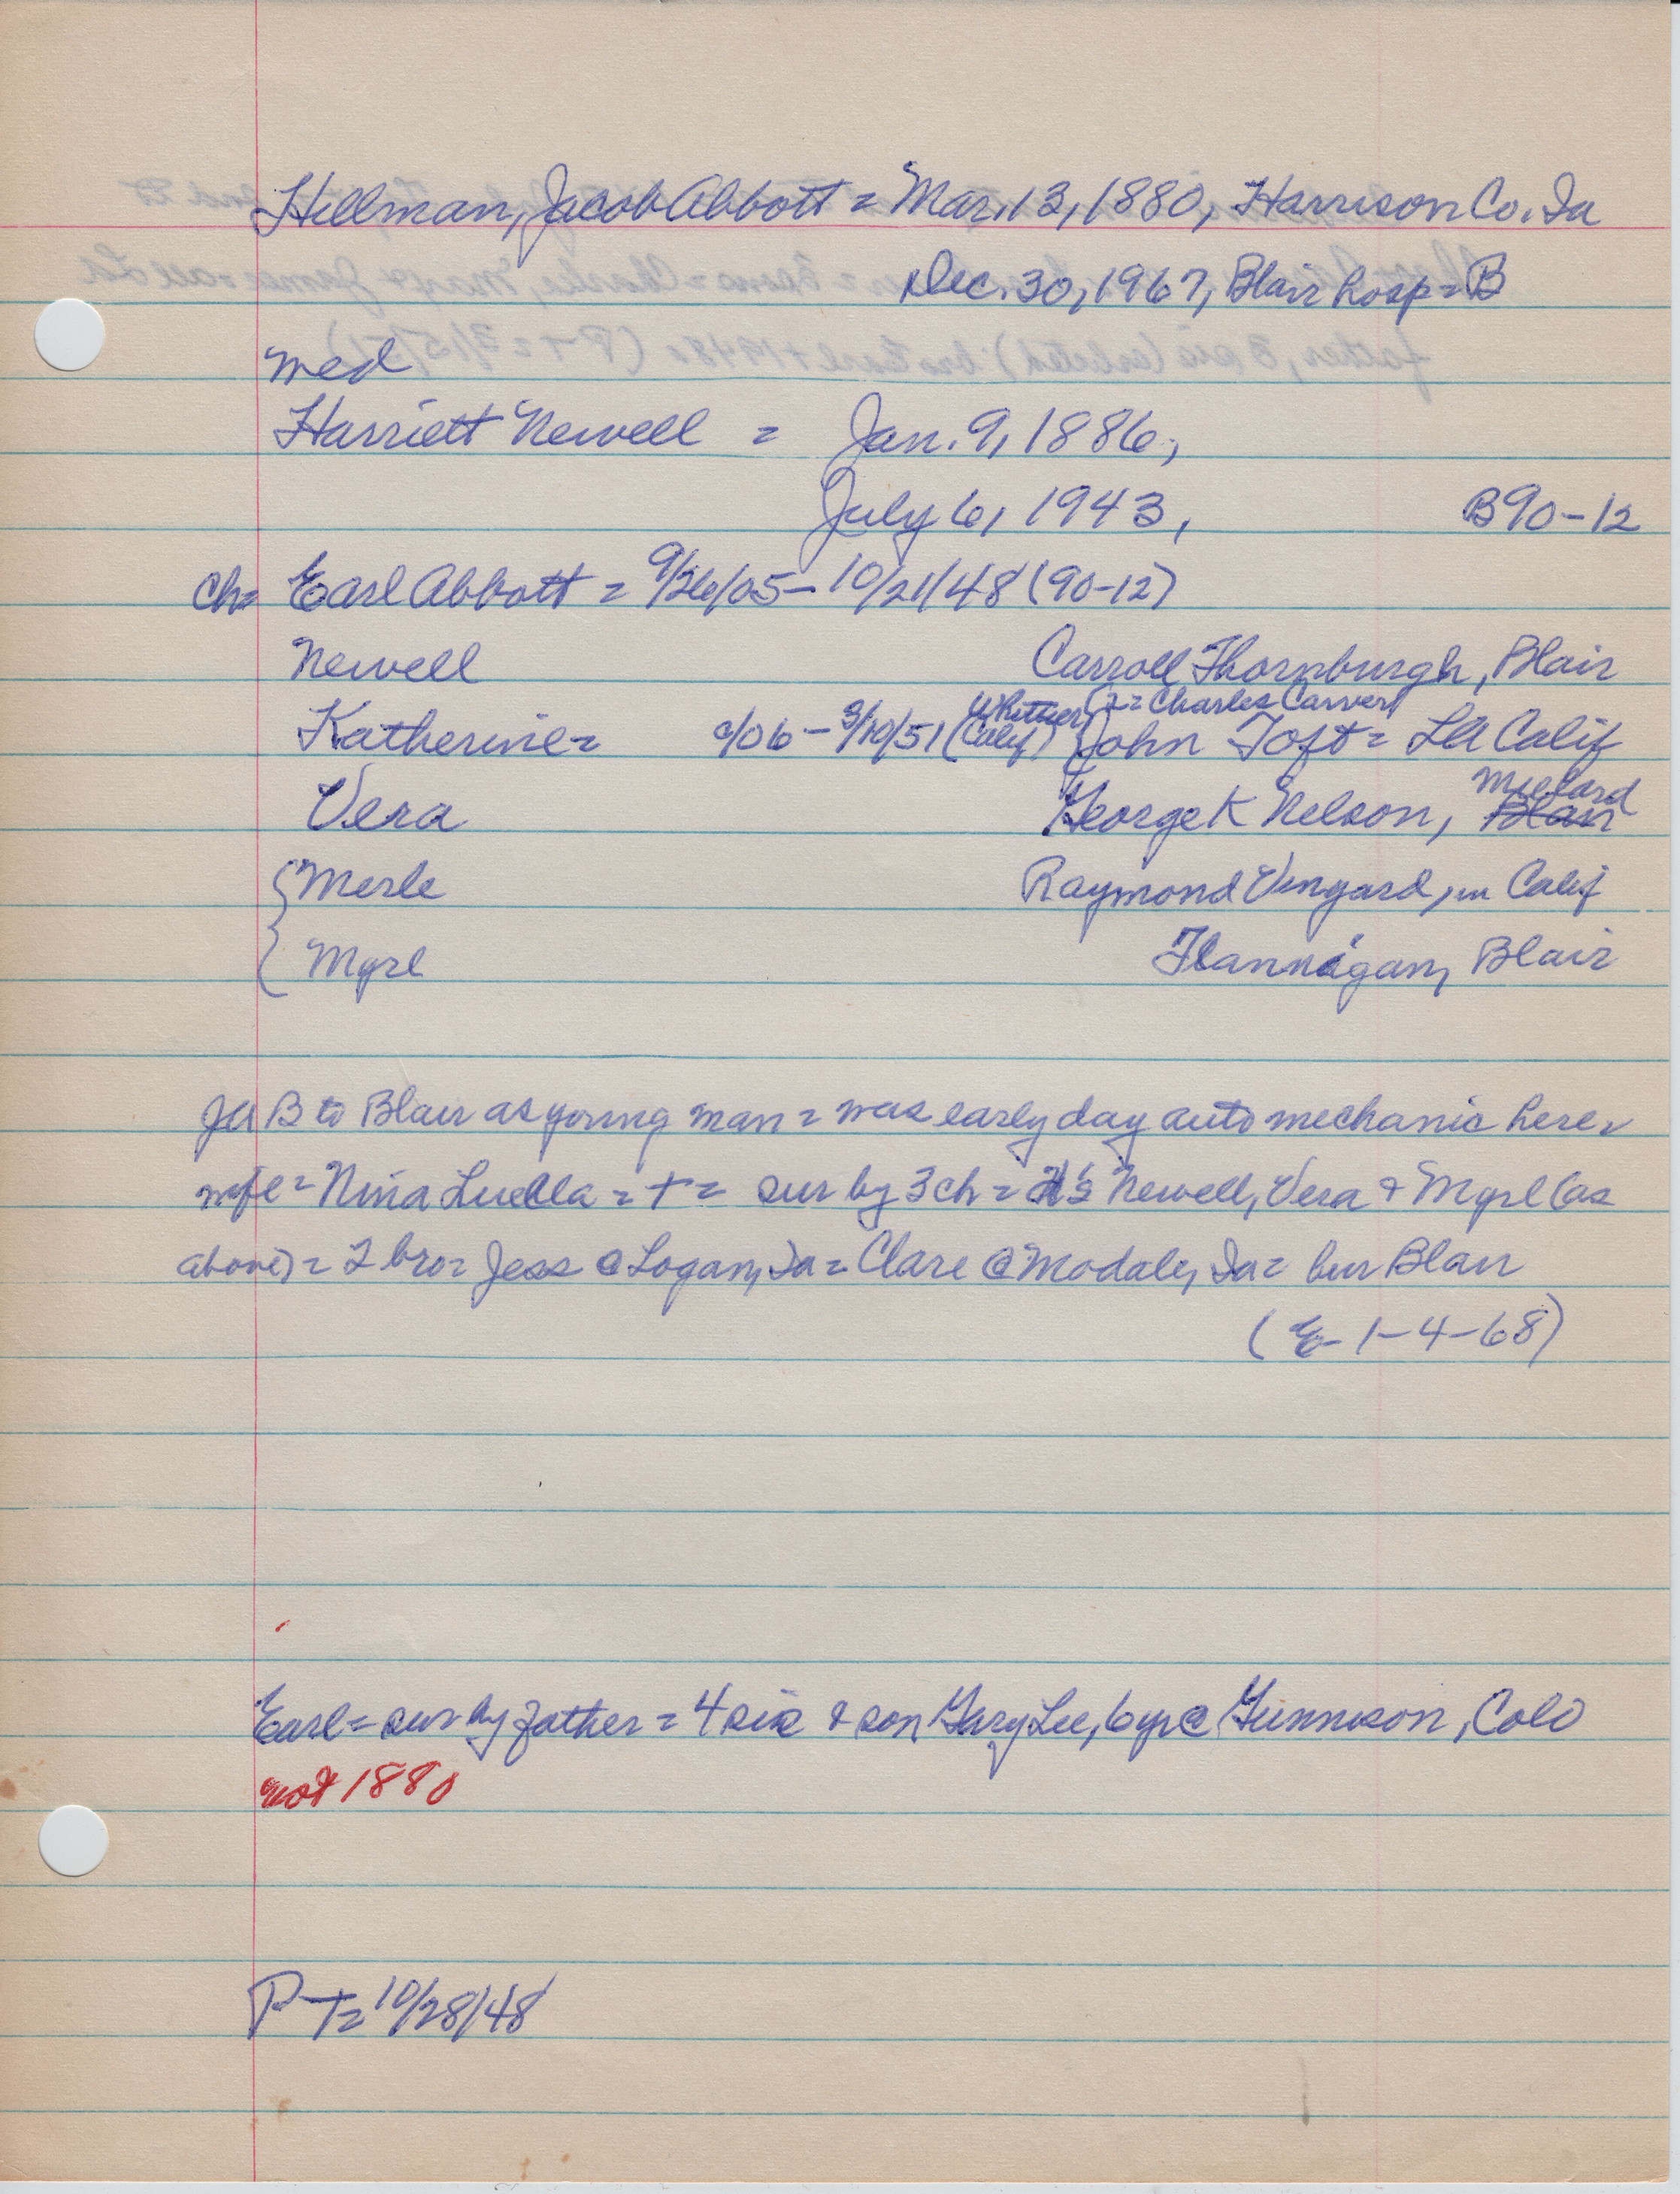 Hillman, Jacob Abbott = Mar. 13, 1880, Harrison Co. Ia
Dec. 30, 1967, Blair hosp = B
med
Harriett Newell = Jan. 9, 1886,
July 6, 1943, B90-12
ch= Earl Abbott = 9/26/05 - 10/21/48 (90-12)
Newell Carroll Thornburgh, Blair
Whittier 2= Charles Carver
Katherine= c/06 - 3/10/51 (Calif) John Toft = LA Calif
Millard
Vera George K Nelson, Blair
Merle Raymond Vingard, in Calif
Myrl Flannagan, Blair
JA B to Blair as young man = was early day auto mechanic here
wife = Nina Luella = + = sur by 3 ch = Newell, Vera & Myrl (as
above) = 2 bro = Jess @ Logan, Ia = Clare @ Modale, Ia = bur Blair
(E- 1-4-68)
Earl = sur by father = 4 sis & son Gary Lee, 6 yr @ Gunnison, Colo
not 1880
P-T= 10/28/48